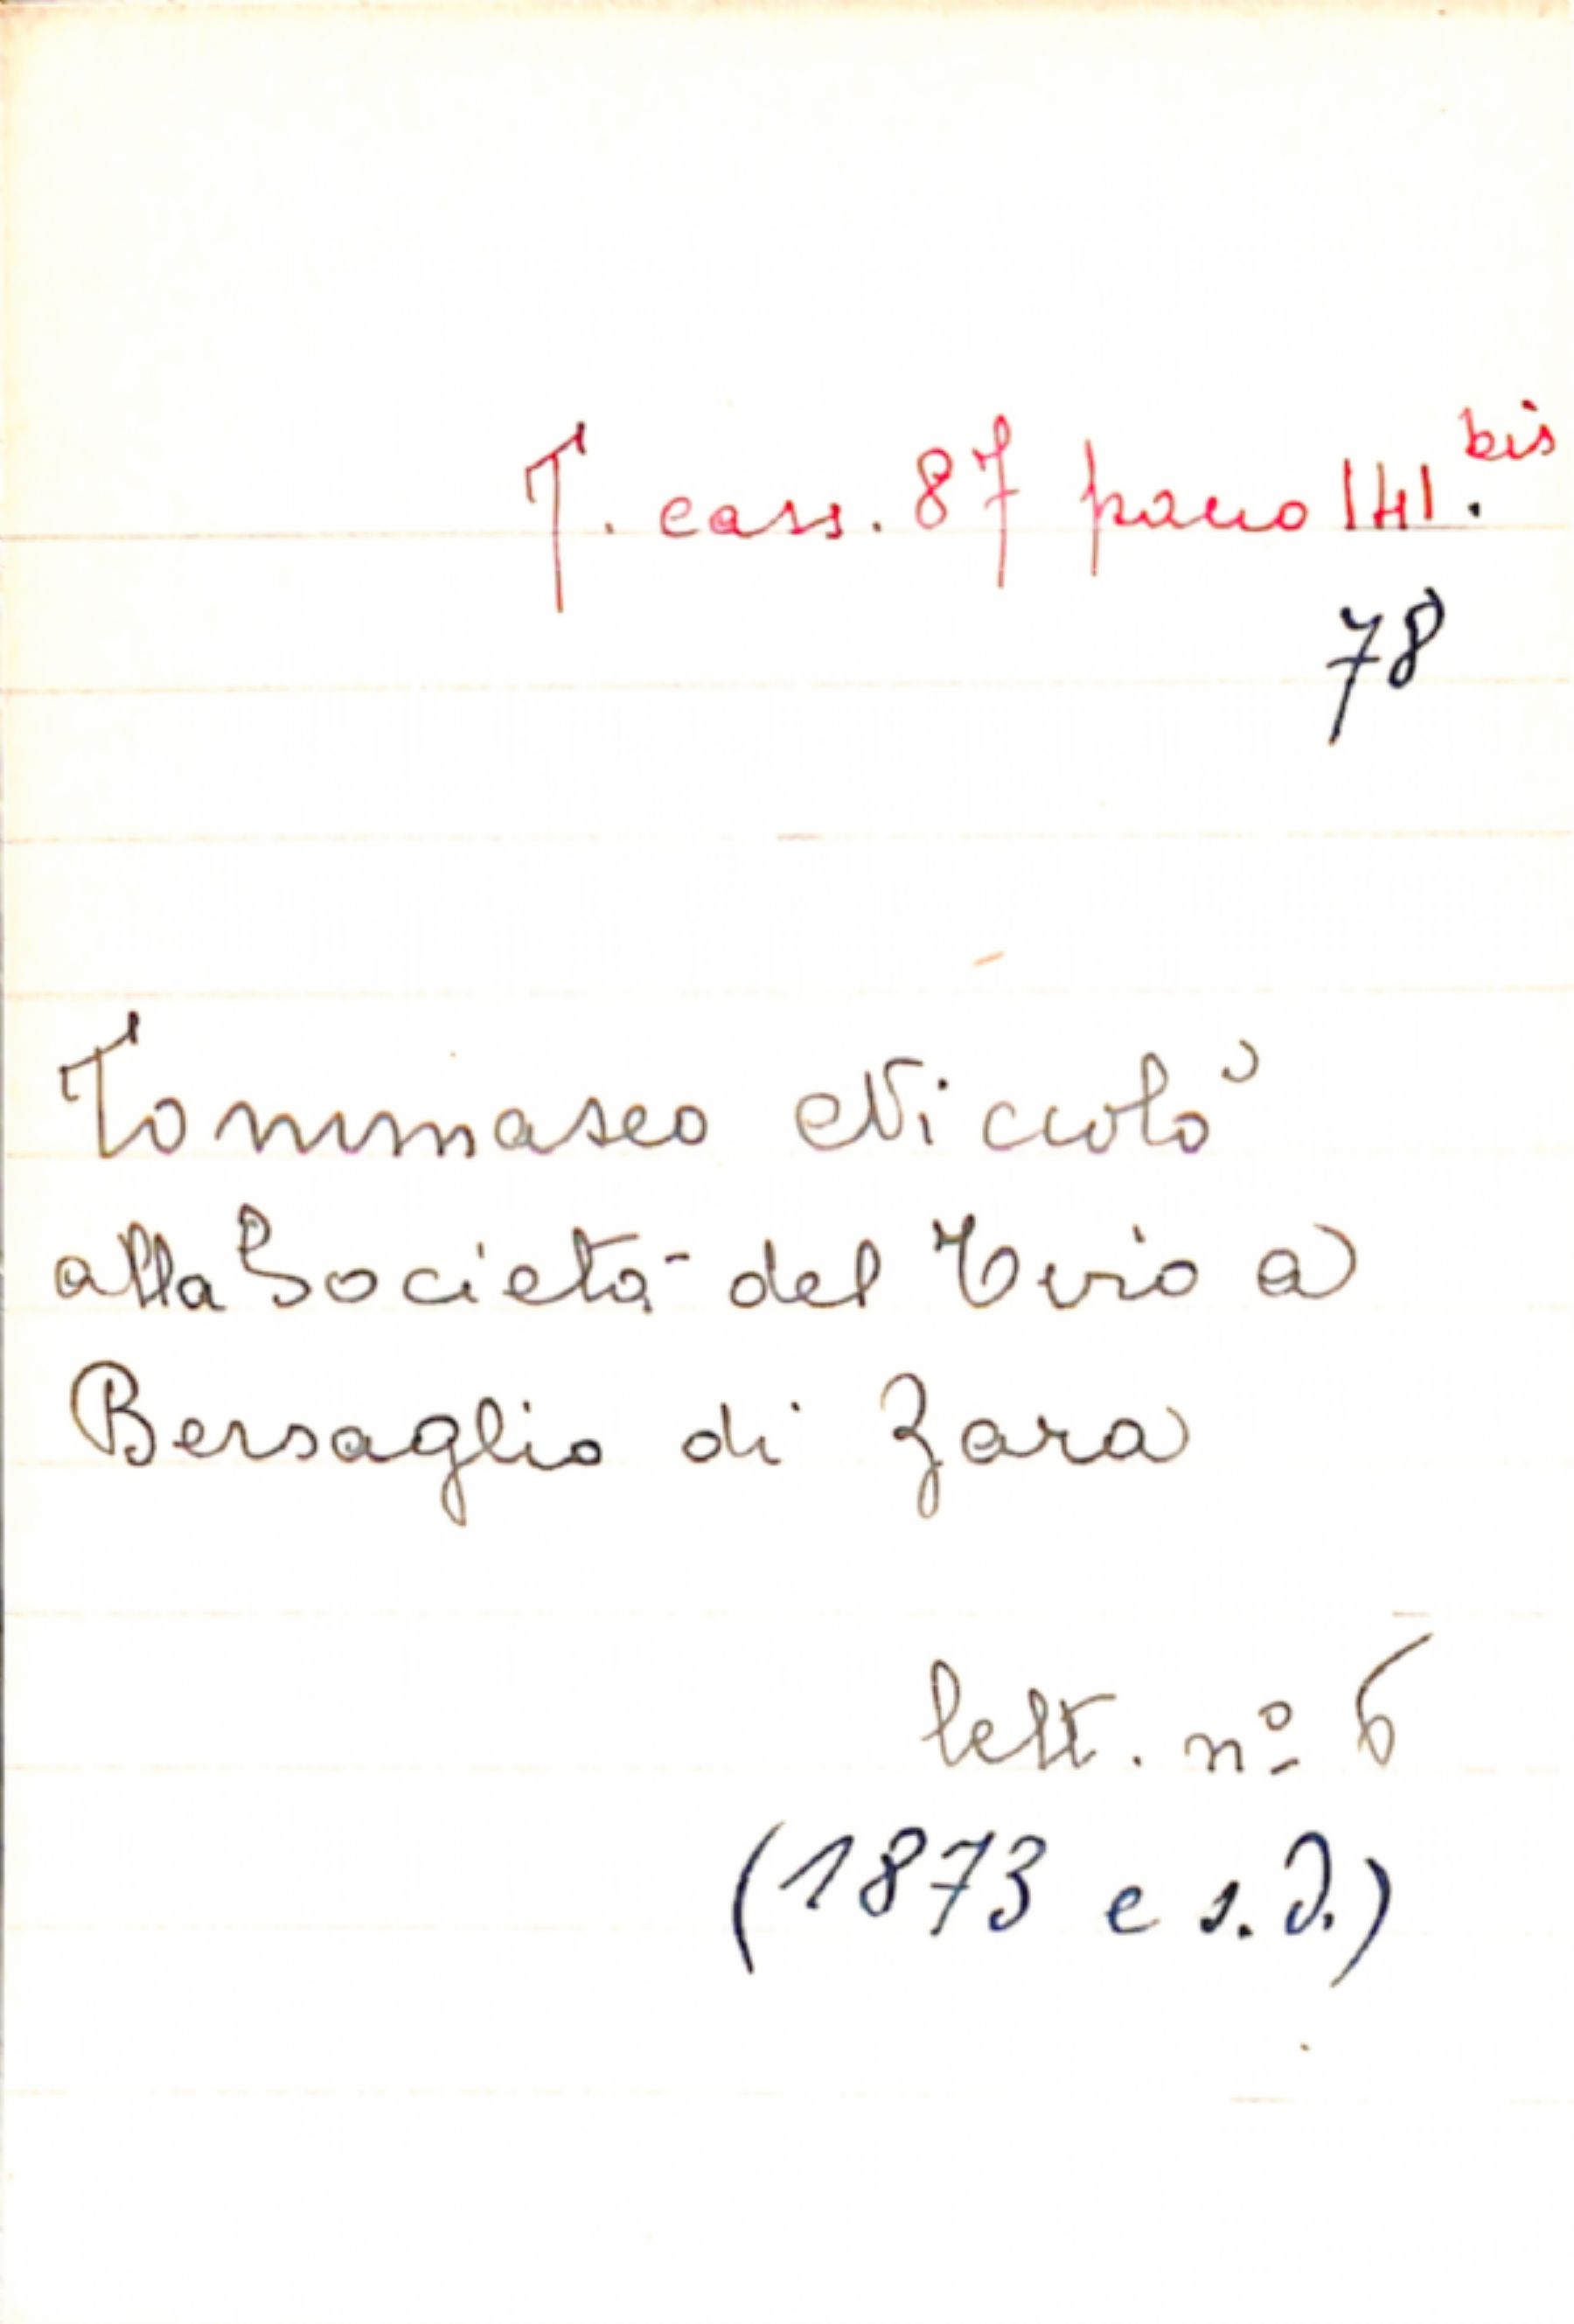 T. cass. 87 pacco 141. bis
78
Tommaseo Niccolò
alla Società del Tiro a
Bersaglio di Zara
lett. nº 6
(1873 e s.d.)